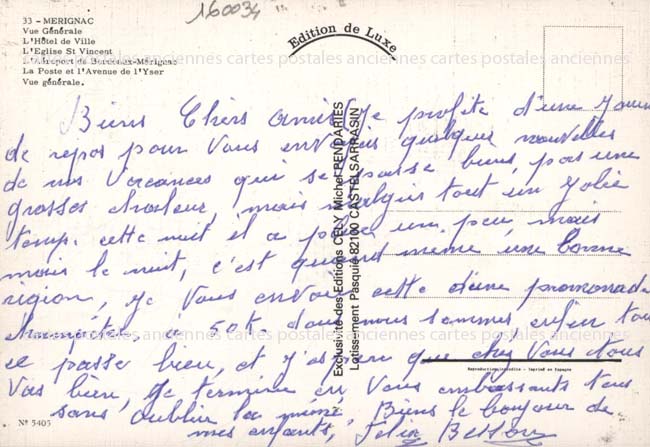 160034
33 - MERIGNAC
Vue Générale
L'Hôtel de Ville
L'Eglise St Vincent
L'Aéroport de Bordeaux-Mérignac
La Poste et l'Avenue de l'Yser
Vue générale.
Edition de Luxe
cartes postales anciennes cartes postales anciennes cartes postales anciennes
Biens Chers amis Je profite d'une
de repos pour Vous quelques nouvelles
de nos Vacances qui se passe bien, pas une
grosses chaleur, mais malgres tout un Jolie
temp. cette nuit il a un peu, mais
mais la nuit, c'est quand même une bonne
région, Je Vous envoi cette d'une promenade
à 50k. dont nous sommes, enfin tou
ce passe bien, et J'espère que chez Vous tous
Vas bien, Je termine en Vous embrassants tous
sans oublier la mémé, Biens le bonjour de
mes enfants, Felix
Exclusivité des Editions CELY Michel PENDARIES
Lotissement Pasquié 82100 CASTELSARRASIN
Reproduction interdite - Imprimé en Espagne
Nº 5405